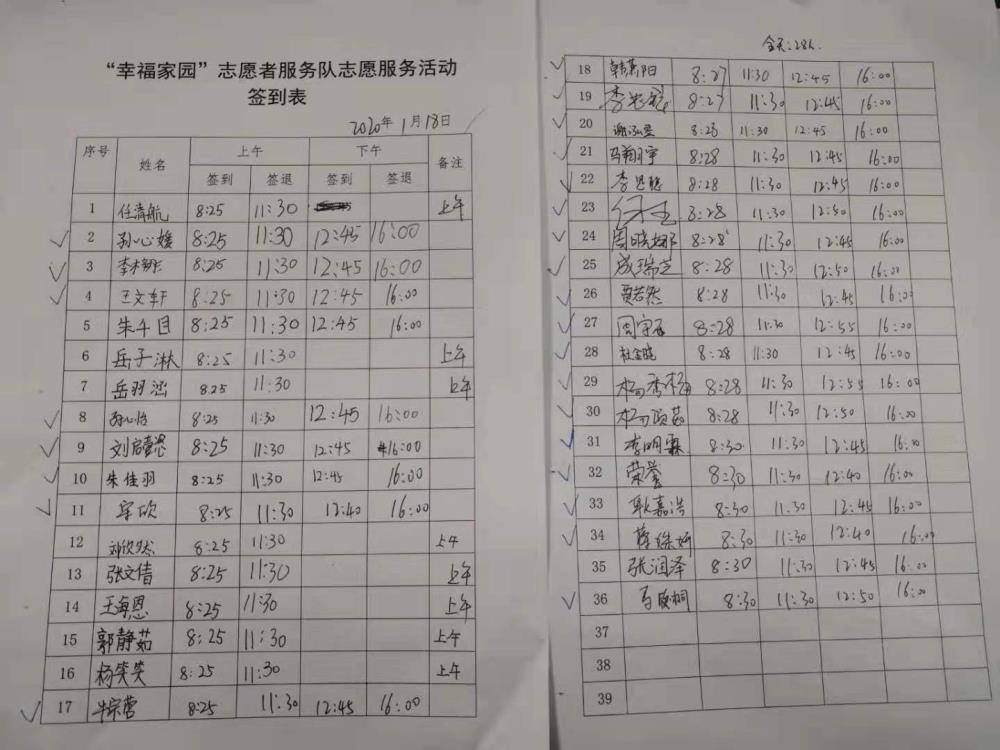 “幸福家园”志愿者服务队志愿服务活动
签到表
2020年1月18日
序号 姓名 上午 下午 备注
签到 签退 签到 签退
1 任清航 8:25 11:30 上午
2 孙心媛 8:25 11:30 12:45 16:00
3 8:25 11:30 12:45 16:00
4 王文轩 8:25 11:30 12:45 16:00
5 朱千目 8:25 11:30 12:45 16:00
6 岳子淋 8:25 11:30 上午
7 岳羽涵 8:25 11:30 上午
8 孙心怡 8:25 11:30 12:45 16:00
9 8:25 11:30 12:45 16:00
10 朱佳羽 8:25 11:30 12:45 16:00
11 8:25 11:30 12:40 16:00
12 刘欣然 8:25 11:30 上午
13 张文倩 8:25 11:30 上午
14 王海恩 8:25 11:30 上午
15 郭静茹 8:25 11:30 上午
16 杨笑笑 8:25 11:30 上午
17 8:25 11:30 12:45 16:00
全天:28人
18 8:27 11:30 12:45 16:00
19 8:27 11:30 12:45 16:00
20 8:28 11:30 12:45 16:00
21 马翔宇 8:28 11:30 12:45 16:00
22 李思聪 8:28 11:30 12:45 16:00
23 8:28 11:30 12:50 16:00
24 周晓娜 8:28 11:30 12:45 16:00
25 成瑞芝 8:28 11:30 12:50 16:00
26 贾若然 8:28 11:30 12:45 16:00
27 8:28 11:30 12:55 16:00
28 杜金晓 8:28 11:30 12:45 16:00
29 杨秀梅 8:28 11:30 12:55 16:00
30 8:28 11:30 12:50 16:00
31 李明霖 8:30 11:30 12:45 16:00
32 荣誉 8:30 11:30 12:40 16:00
33 耿嘉浩 8:30 11:30 12:45 16:00
34 8:30 11:30 12:40 16:00
35 张润泽 8:30 11:30 12:45 16:00
36 8:30 11:30 12:50 16:00
37
38
39